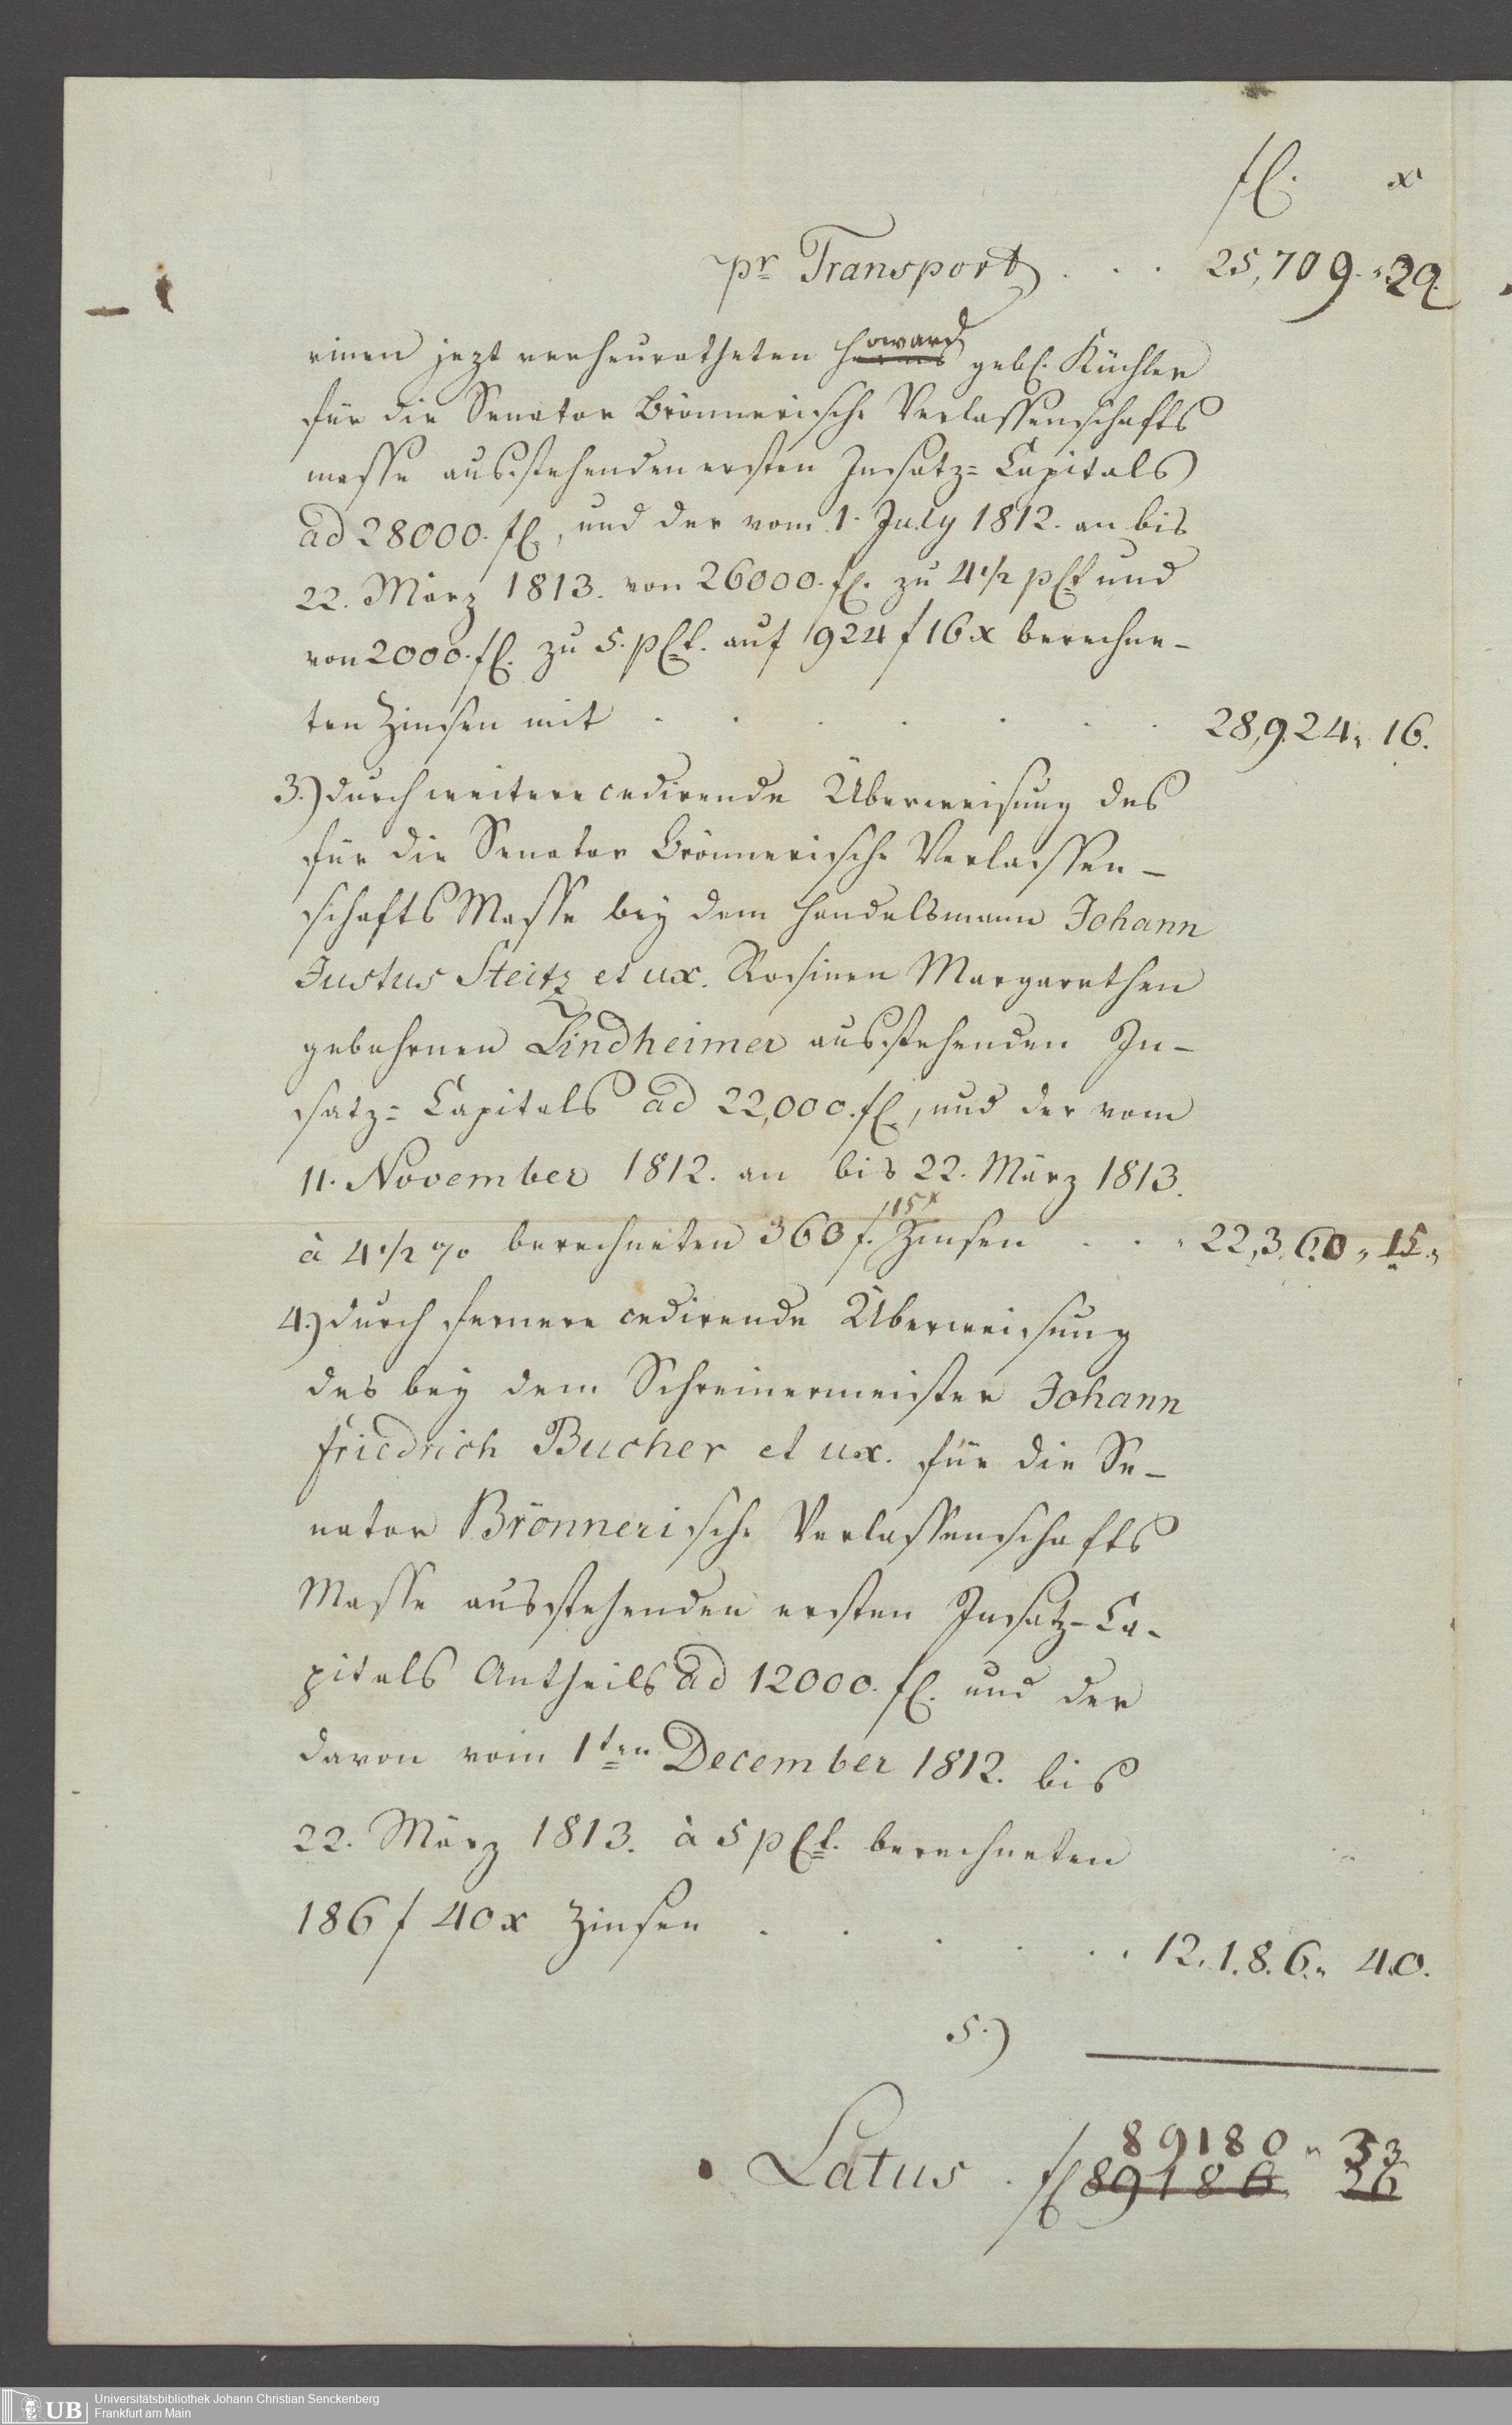 fl. x
pr Transport . . . 25,709. 22.
rinen jezt verheuratheten Howard gebl. Küchler
für die Senator Brönnerische Verlassenschafts
masse ausstehenden ersten Insatz=Capitals
ad 28000. fl., und der vom 1. July 1812. an bis
22. März 1813. von 26000. fl. zu 4 1/2 pCt und
von 2000. fl. zu 5. pCt. auf 924 f 16 x berechne-
ten Zinsen mit . . . . . . . 28,924,, 16.
3.) durch weitere cedirende Überweisung des
für die Senator Brönnerische Verlassen-
schafts Masse bey dem Handelsmann Johann
Justus Steitz et ux. Rosinen Margarethen
gebohrnen Lindheimer ausstehenden In-
satz=Capitals ad 22,000. fl., und der vom
11. November 1812. an bis 22. März 1813.
à 4 1/2 % berechneten 360 f. 15x Zinsen . . . 22,360,, 15,,
4.) durch fernere cedirende Überweisung
des bey dem Schreinermeister Johann
Friedrich Bucher et ux. für die Se-
nator Brönnerische Verlassenschafts
Masse ausstehenden ersten Insatz-Ca-
pitals Antheils ad 12000. fl. und der
davon vom 1ten December 1812. bis
22. März 1813. à 5 pCt. berechneten
186 f 40 x Zinsen . . . . . . 12.1.8.6.,, 40.
5.)
89180 ,, 33
Latus . fl 89186. 26
Universitätsbibliothek Johann Christian Senckenberg
UB Frankfurt am Main